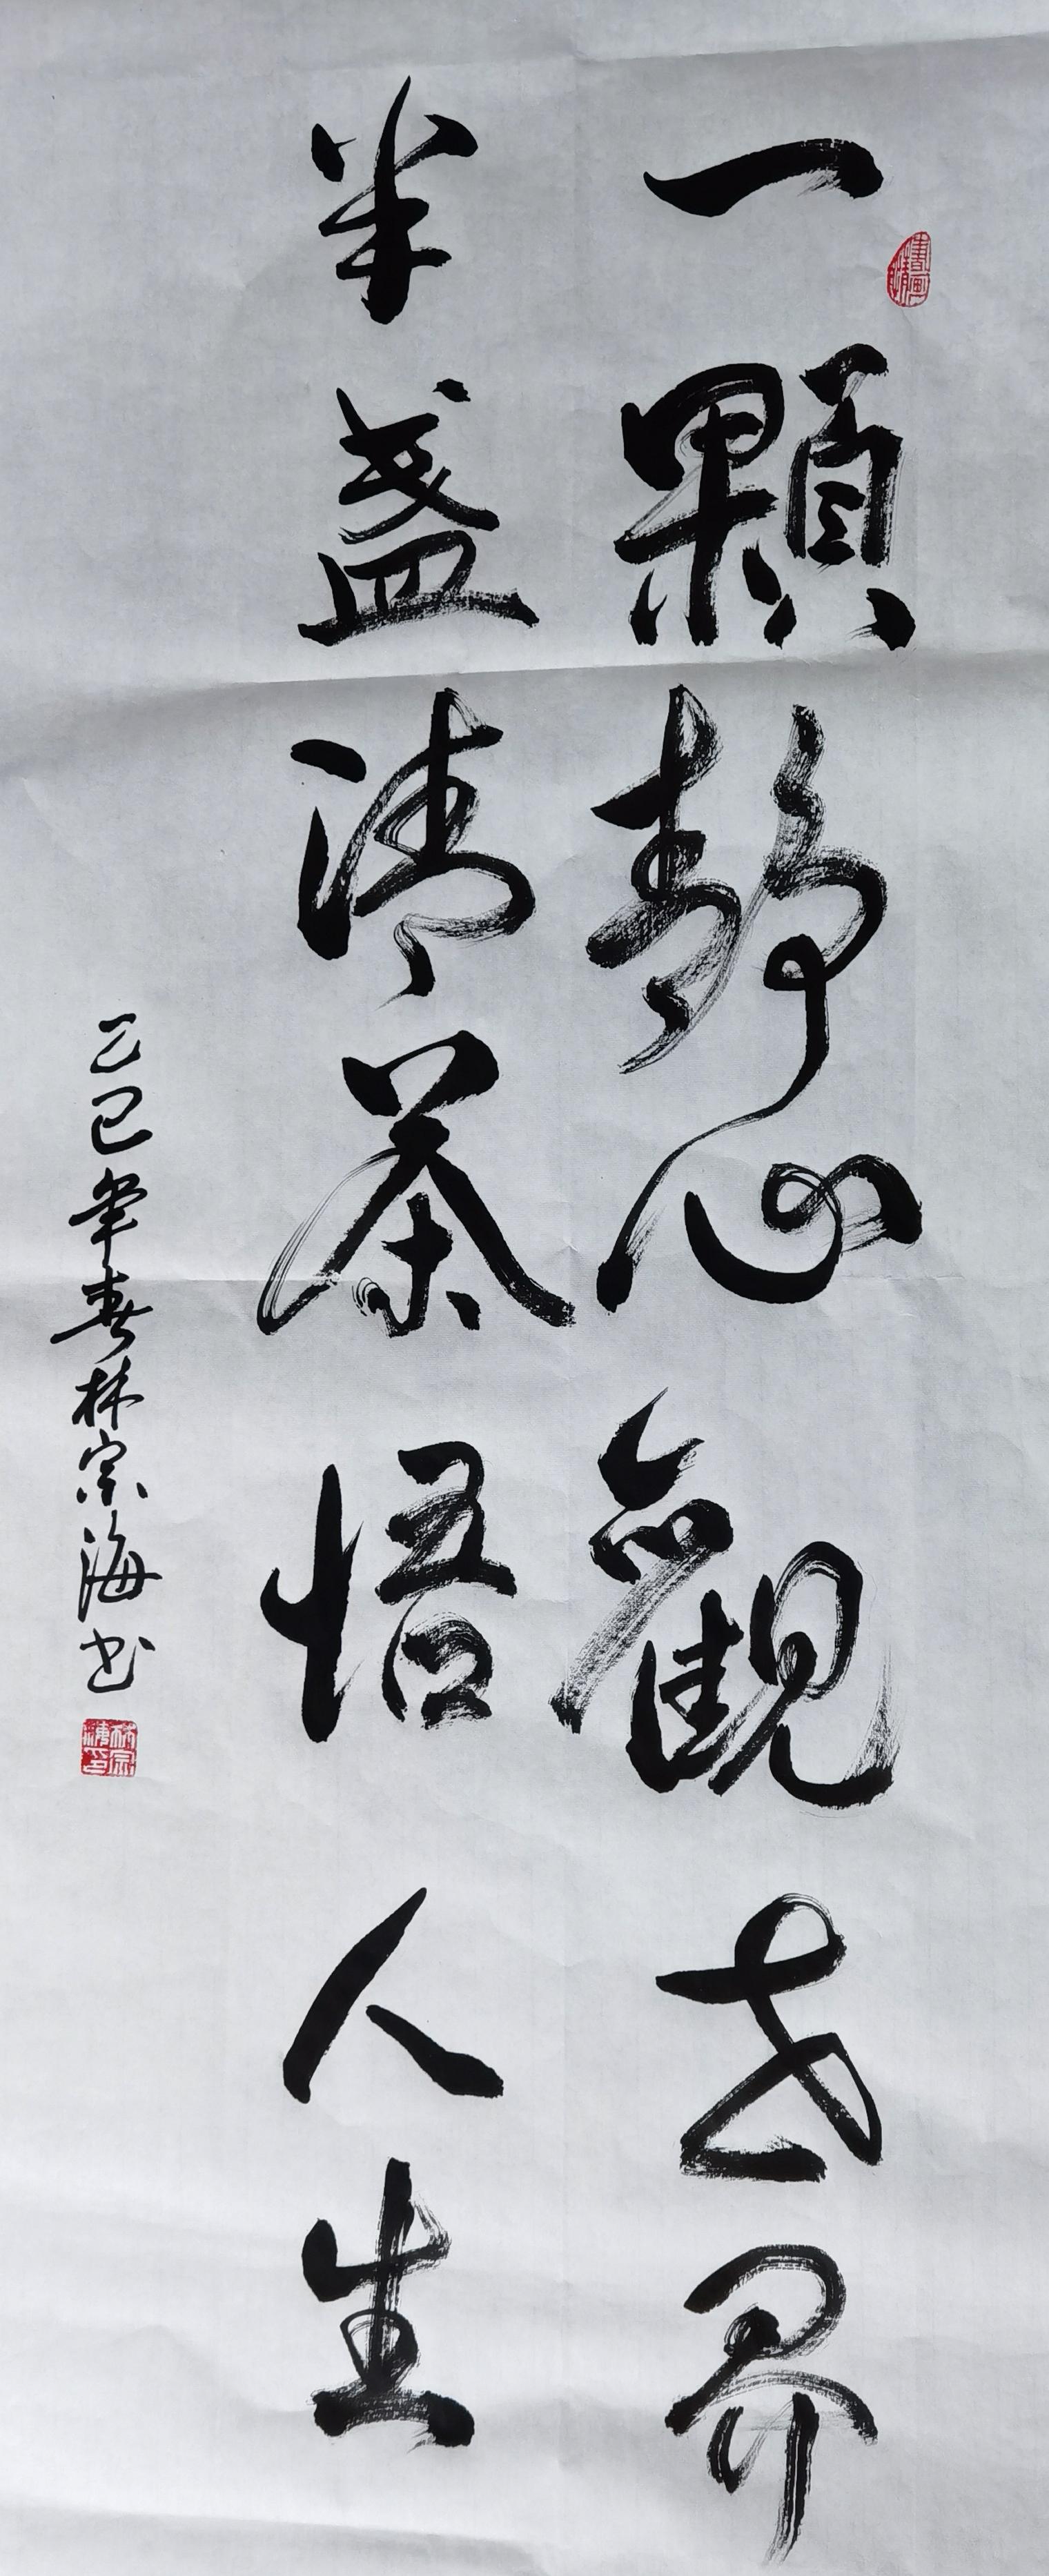 一顆静心觀世界
半盞清茶悟人生
乙巳年春林宗海书
林宗海印